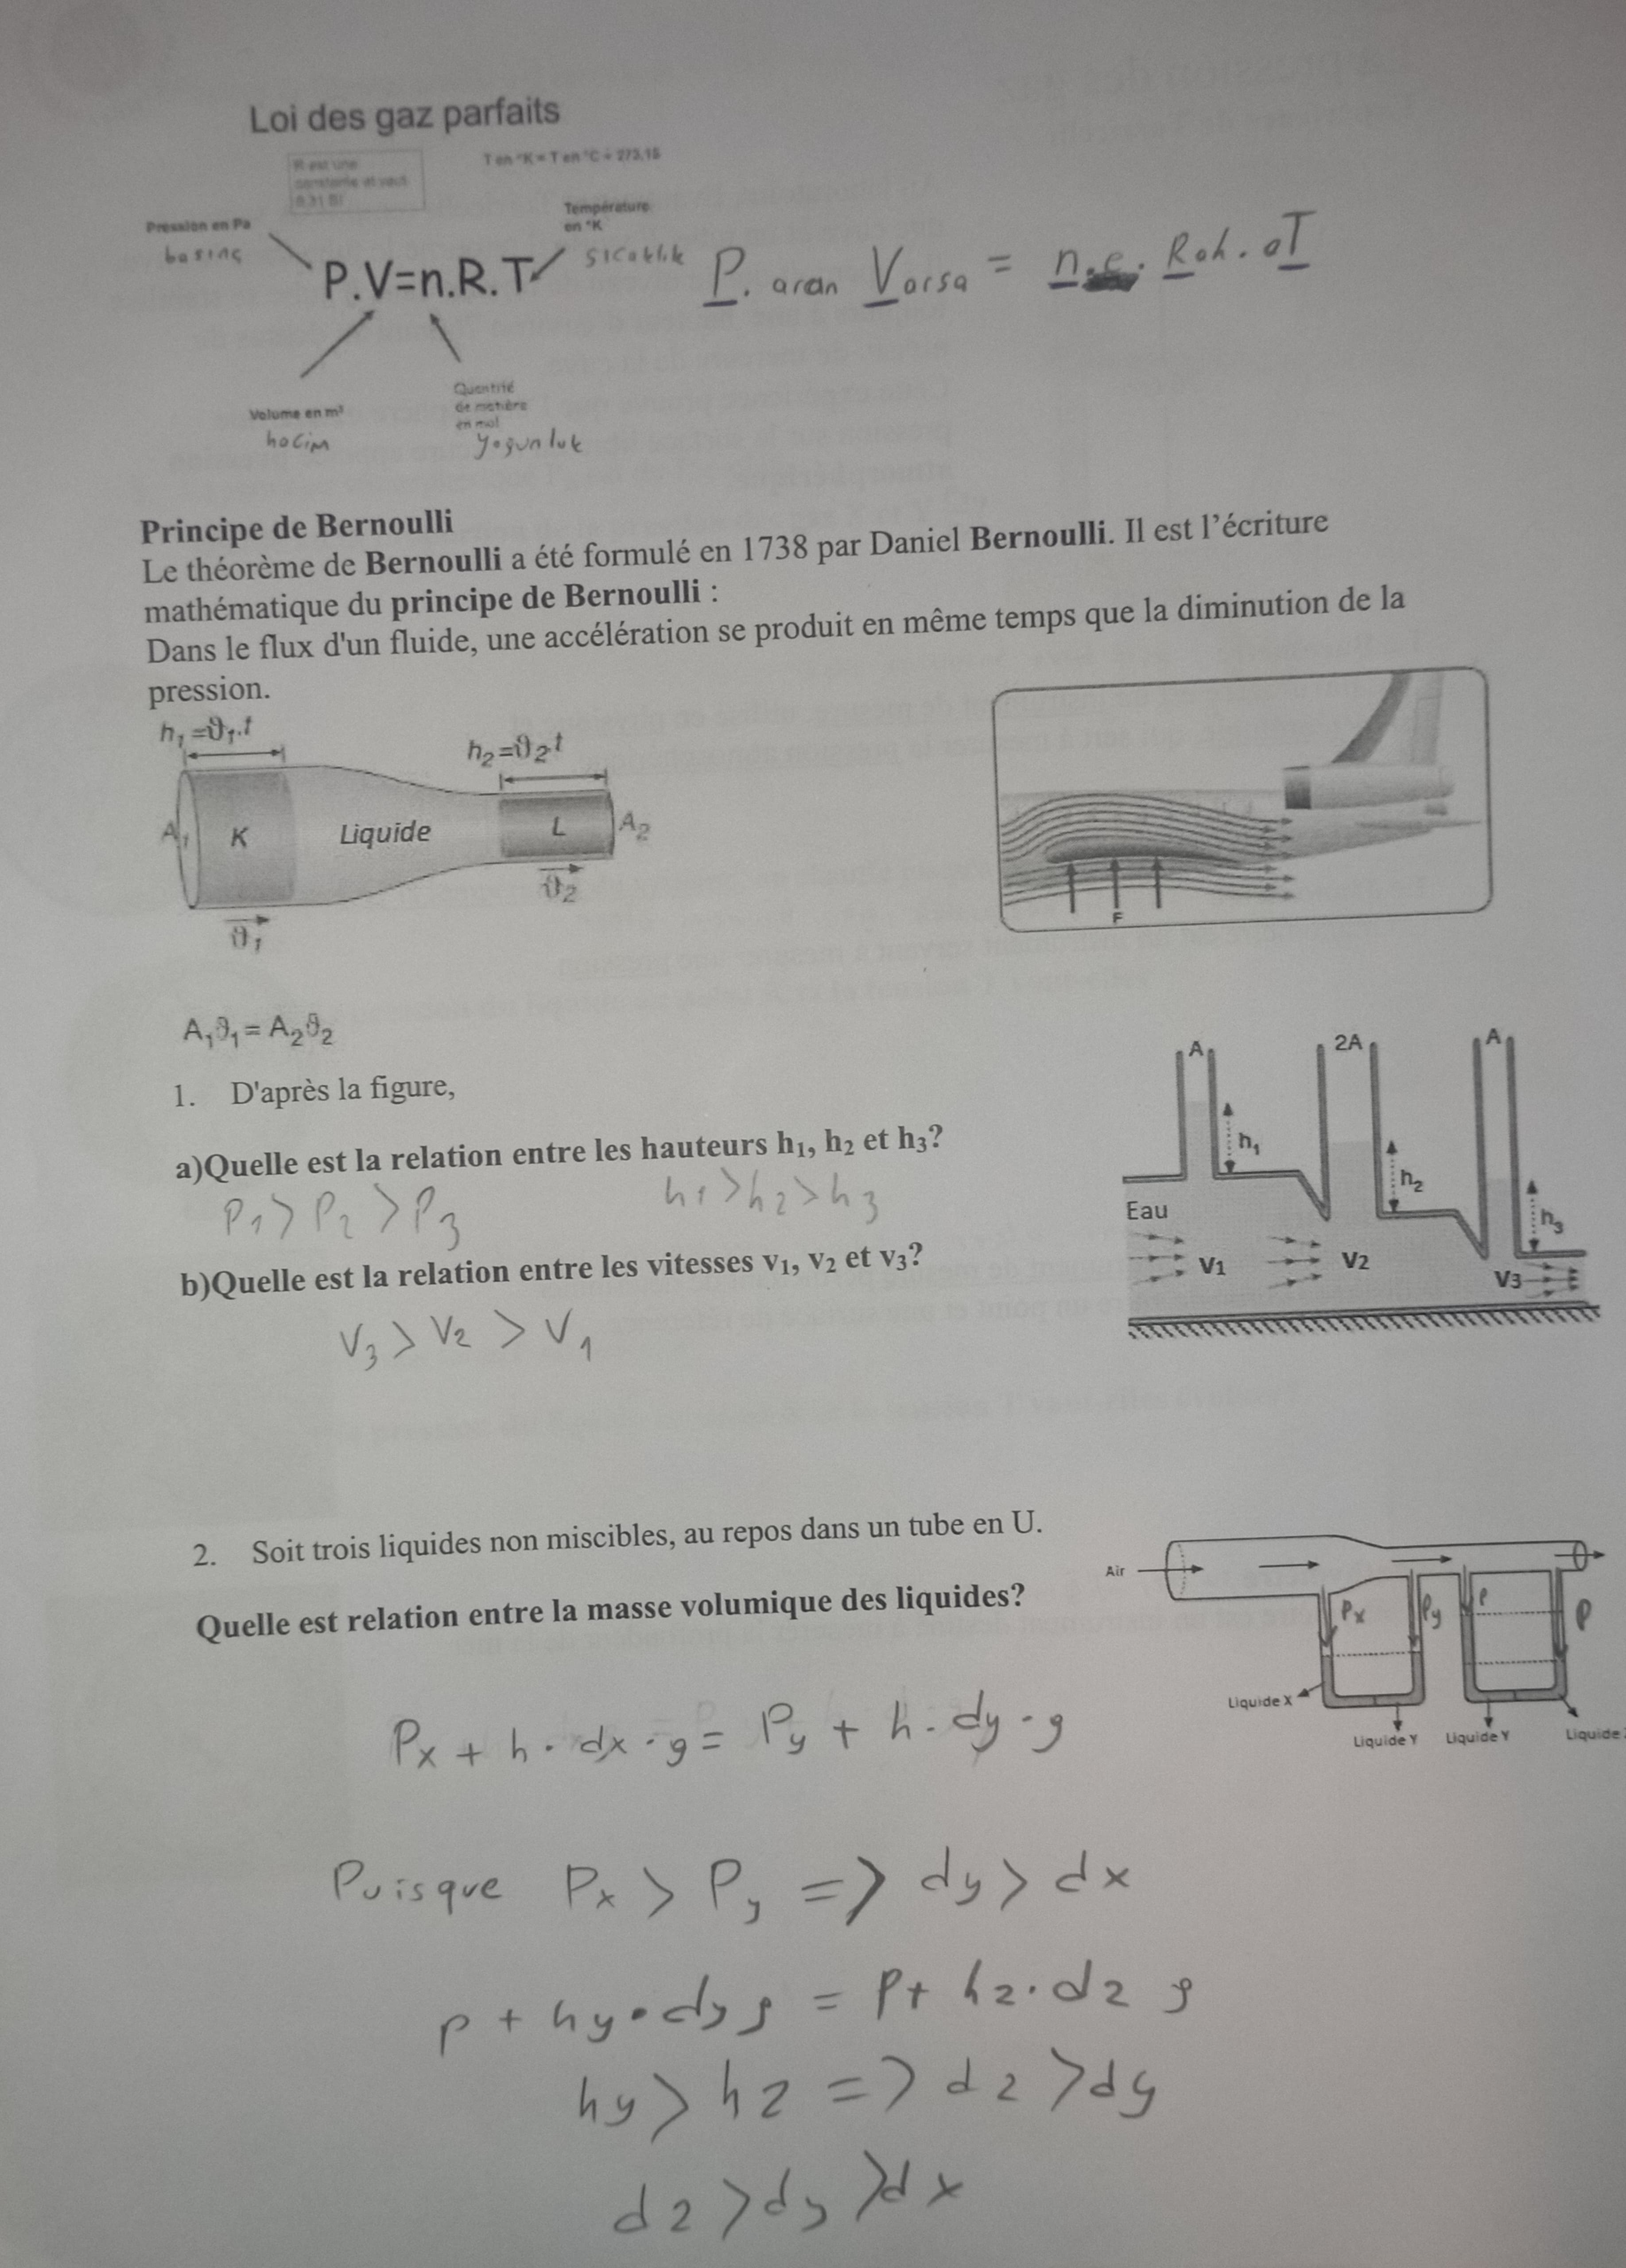 Loi des gaz parfaits
R est une
constante et vaut
8.31 SI
T en °K = T en °C + 273,15
Pression en Pa
basınç
Température
en °K
sıcaklık
P.V=n.R.T
P. aran Varsa = n.e. Rah. aT
Volume en m³
hacim
Quantité
de matière
en mol
yogunluk
Principe de Bernoulli
Le théorème de Bernoulli a été formulé en 1738 par Daniel Bernoulli. Il est l'écriture
mathématique du principe de Bernoulli :
Dans le flux d'un fluide, une accélération se produit en même temps que la diminution de la
pression.
h₁=ϑ₁.t
h₂=ϑ₂.t
A₁ K Liquide L A₂
ϑ₁
ϑ₂
F
A₁ϑ₁ = A₂ϑ₂
1. D'après la figure,
a)Quelle est la relation entre les hauteurs h₁, h₂ et h₃?
P₁ > P₂ > P₃ h₁ > h₂ > h₃
b)Quelle est la relation entre les vitesses v₁, v₂ et v₃?
V₃ > V₂ > V₁
A 2A A
h₁
h₂
h₃
Eau
V₁ V₂ V₃
2. Soit trois liquides non miscibles, au repos dans un tube en U.
Quelle est relation entre la masse volumique des liquides?
Air
Px Py P P
Liquide X
Liquide Y Liquide Y Liquide
Px + h . dx . g = Py + h . dy . g
Puisque Px > Py => dy > dx
p + hy . dy g = P + hz . dz g
hy > hz => dz > dy
dz > dy > dx